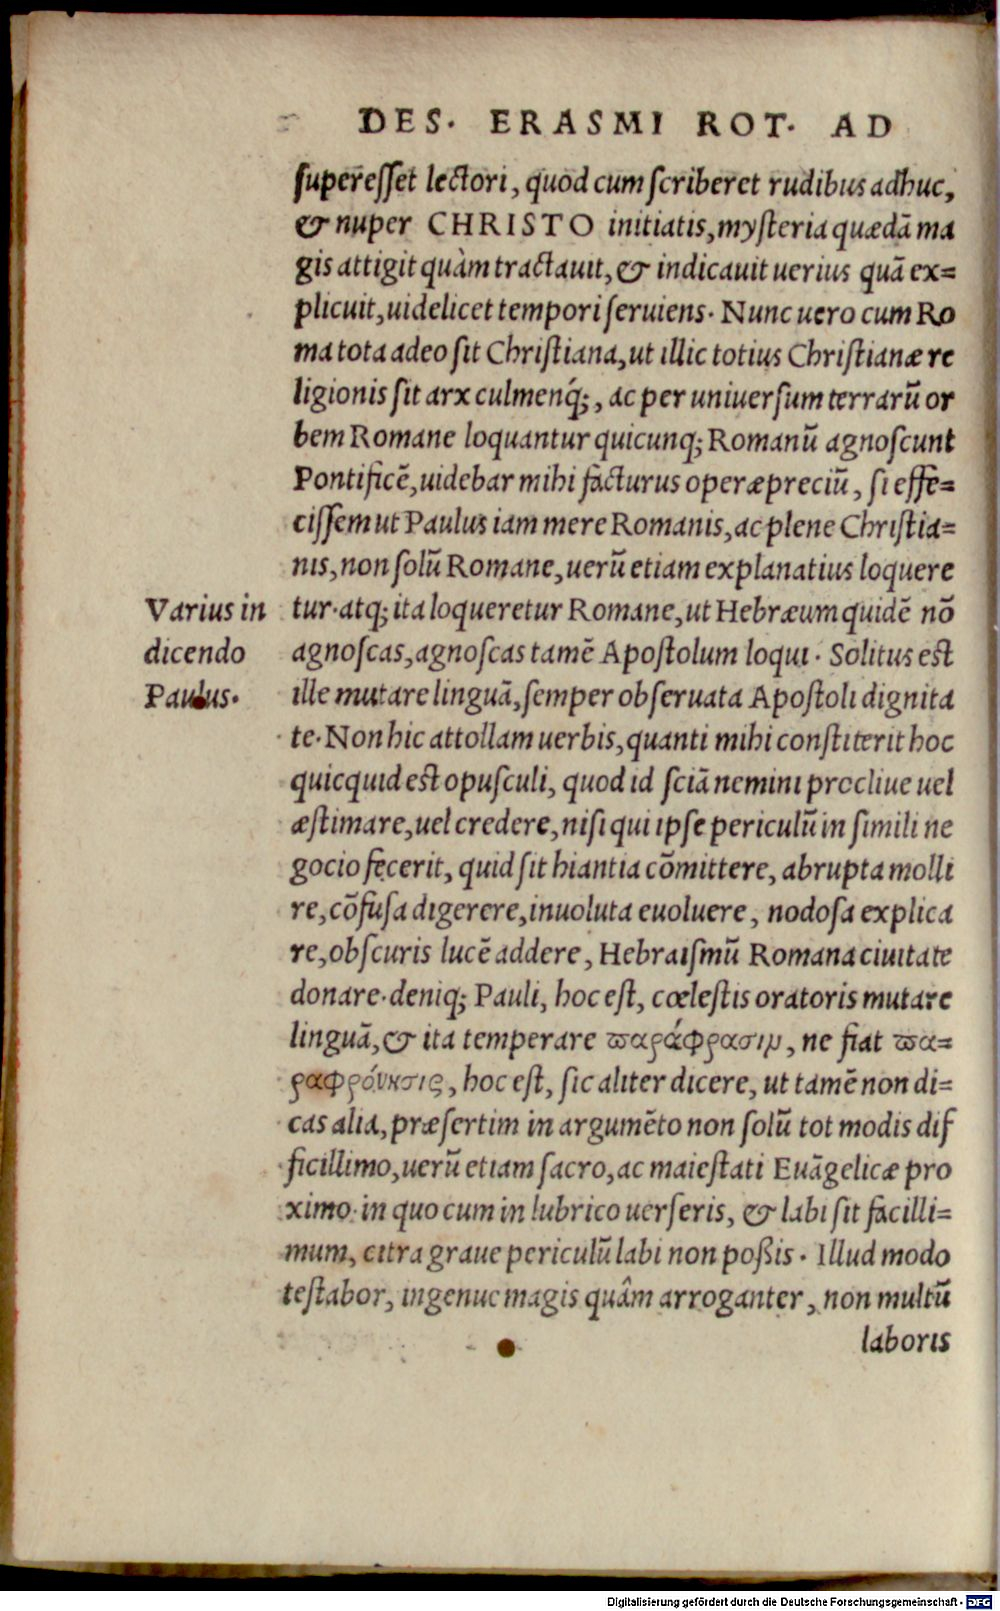 DES. ERASMI ROT. AD
superesset lectori, quod cum scriberet rudibus adhuc,
& nuper CHRISTO initiatis, mysteria quædã ma
gis attigit quàm tractauit, & indicauit uerius quã ex=
plicuit, uidelicet tempori seruiens. Nunc uero cum Ro
ma tota adeo sit Christiana, ut illic totius Christianæ re
ligionis sit arx culmenq́;, ac per uniuersum terrarũ or
bem Romane loquantur quicunq; Romanũ agnoscunt
Pontificẽ, uidebar mihi facturus operæpreciũ, si effe=
cissem ut Paulus iam mere Romanis, ac plene Christia=
nis, non solũ Romane, uerũ etiam explanatius loquere
Varius in
dicendo
Paulus.
tur. atq; ita loqueretur Romane, ut Hebræum quidẽ nõ
agnoscas, agnoscas tamẽ Apostolum loqui. Solitus est
ille mutare linguã, semper obseruata Apostoli dignita
te. Non hic attollam uerbis, quanti mihi constiterit hoc
quicquid est opusculi, quod id sciã nemini procliue uel
æstimare, uel credere, nisi qui ipse periculũ in simili ne
gocio fecerit, quid sit hiantia cõmittere, abrupta molli
re, cõfusa digerere, inuoluta euoluere, nodosa explica
re, obscuris lucẽ addere, Hebraismũ Romana ciuitate
donare. deniq; Pauli, hoc est, cœlestis oratoris mutare
linguã, & ita temperare παράφρασιμ, ne fiat πα=
ραφρόνησις, hoc est, sic aliter dicere, ut tamẽ non di=
cas alia, præsertim in argumẽto non solũ tot modis dif
ficillimo, uerũ etiam sacro, ac maiestati Euãgelicæ pro
ximo. in quo cum in lubrico uerseris, & labi sit facilli=
mum, citra graue periculũ labi non poßis. Illud modo
testabor, ingenue magis quâm arroganter, non multũ
laboris
Digitalisierung gefördert durch die Deutsche Forschungsgemeinschaft - DFG